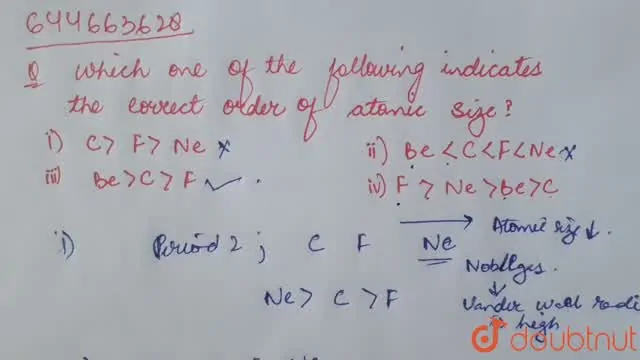 644663628
Q which one of the following indicates
the correct order of atomic size?
i) C > F > Ne x
ii) Be < C < F < Ne x
iii) Be > C > F ✓.
iv) F > Ne > Be > C
Atomic size ↓.
i) Period 2 ; C F Ne
Noblges.
↓
Ne > C > F
Vander waal radi
is high
doubtnut